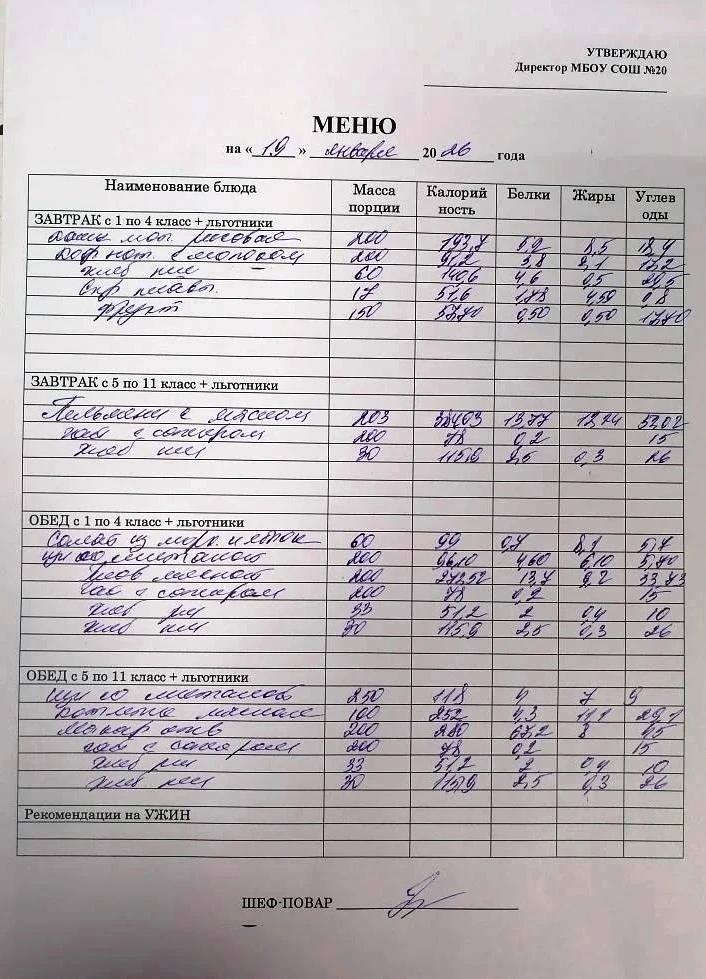 УТВЕРЖДАЮ
Директор МБОУ СОШ №20
МЕНЮ
на « 19 » января 20 26 года
Наименование блюда Масса порции Калорийность Белки Жиры Углеводы
ЗАВТРАК с 1 по 4 класс + льготники
каша мол. рисовая 200 193,7 8,5 18,9
коф нап. с молоком 200 91,2 3,8 2,1 13,2
хлеб пш 60 140,6 4,6 0,5 29,5
сыр плавл. 17 51,6 1,78 4,59 0,8
фрукт 150 57,70 0,50 0,50 17,70
ЗАВТРАК с 5 по 11 класс + льготники
Пельмени с маслом 203 13,77 12,74 52,02
чай с сахаром 200 78 0,2 15
хлеб пш 30 115,9 2,5 0,3 26
ОБЕД с 1 по 4 класс + льготники
Салат из морк. и яблок 60 99 0,7 8,1 5,7
щи со сметаной 200 96,10 4,60 6,10 5,70
плов мясной 200 272,52 13,7 9,2 33,73
чай с сахаром 200 78 0,2 15
хлеб рж 33 51,2 2 0,4 10
хлеб пш 30 115,9 2,5 0,3 26
ОБЕД с 5 по 11 класс + льготники
щи со сметаной 250 118 4 7 9
котлета мясная 100 252 4,3 11,1 29,1
макар отв 200 280 67,2 8 45
чай с сахаром 200 78 0,2 15
хлеб рж 33 51,2 2 0,4 10
хлеб пш 30 115,9 2,5 0,3 26
Рекомендации на УЖИН
ШЕФ-ПОВАР